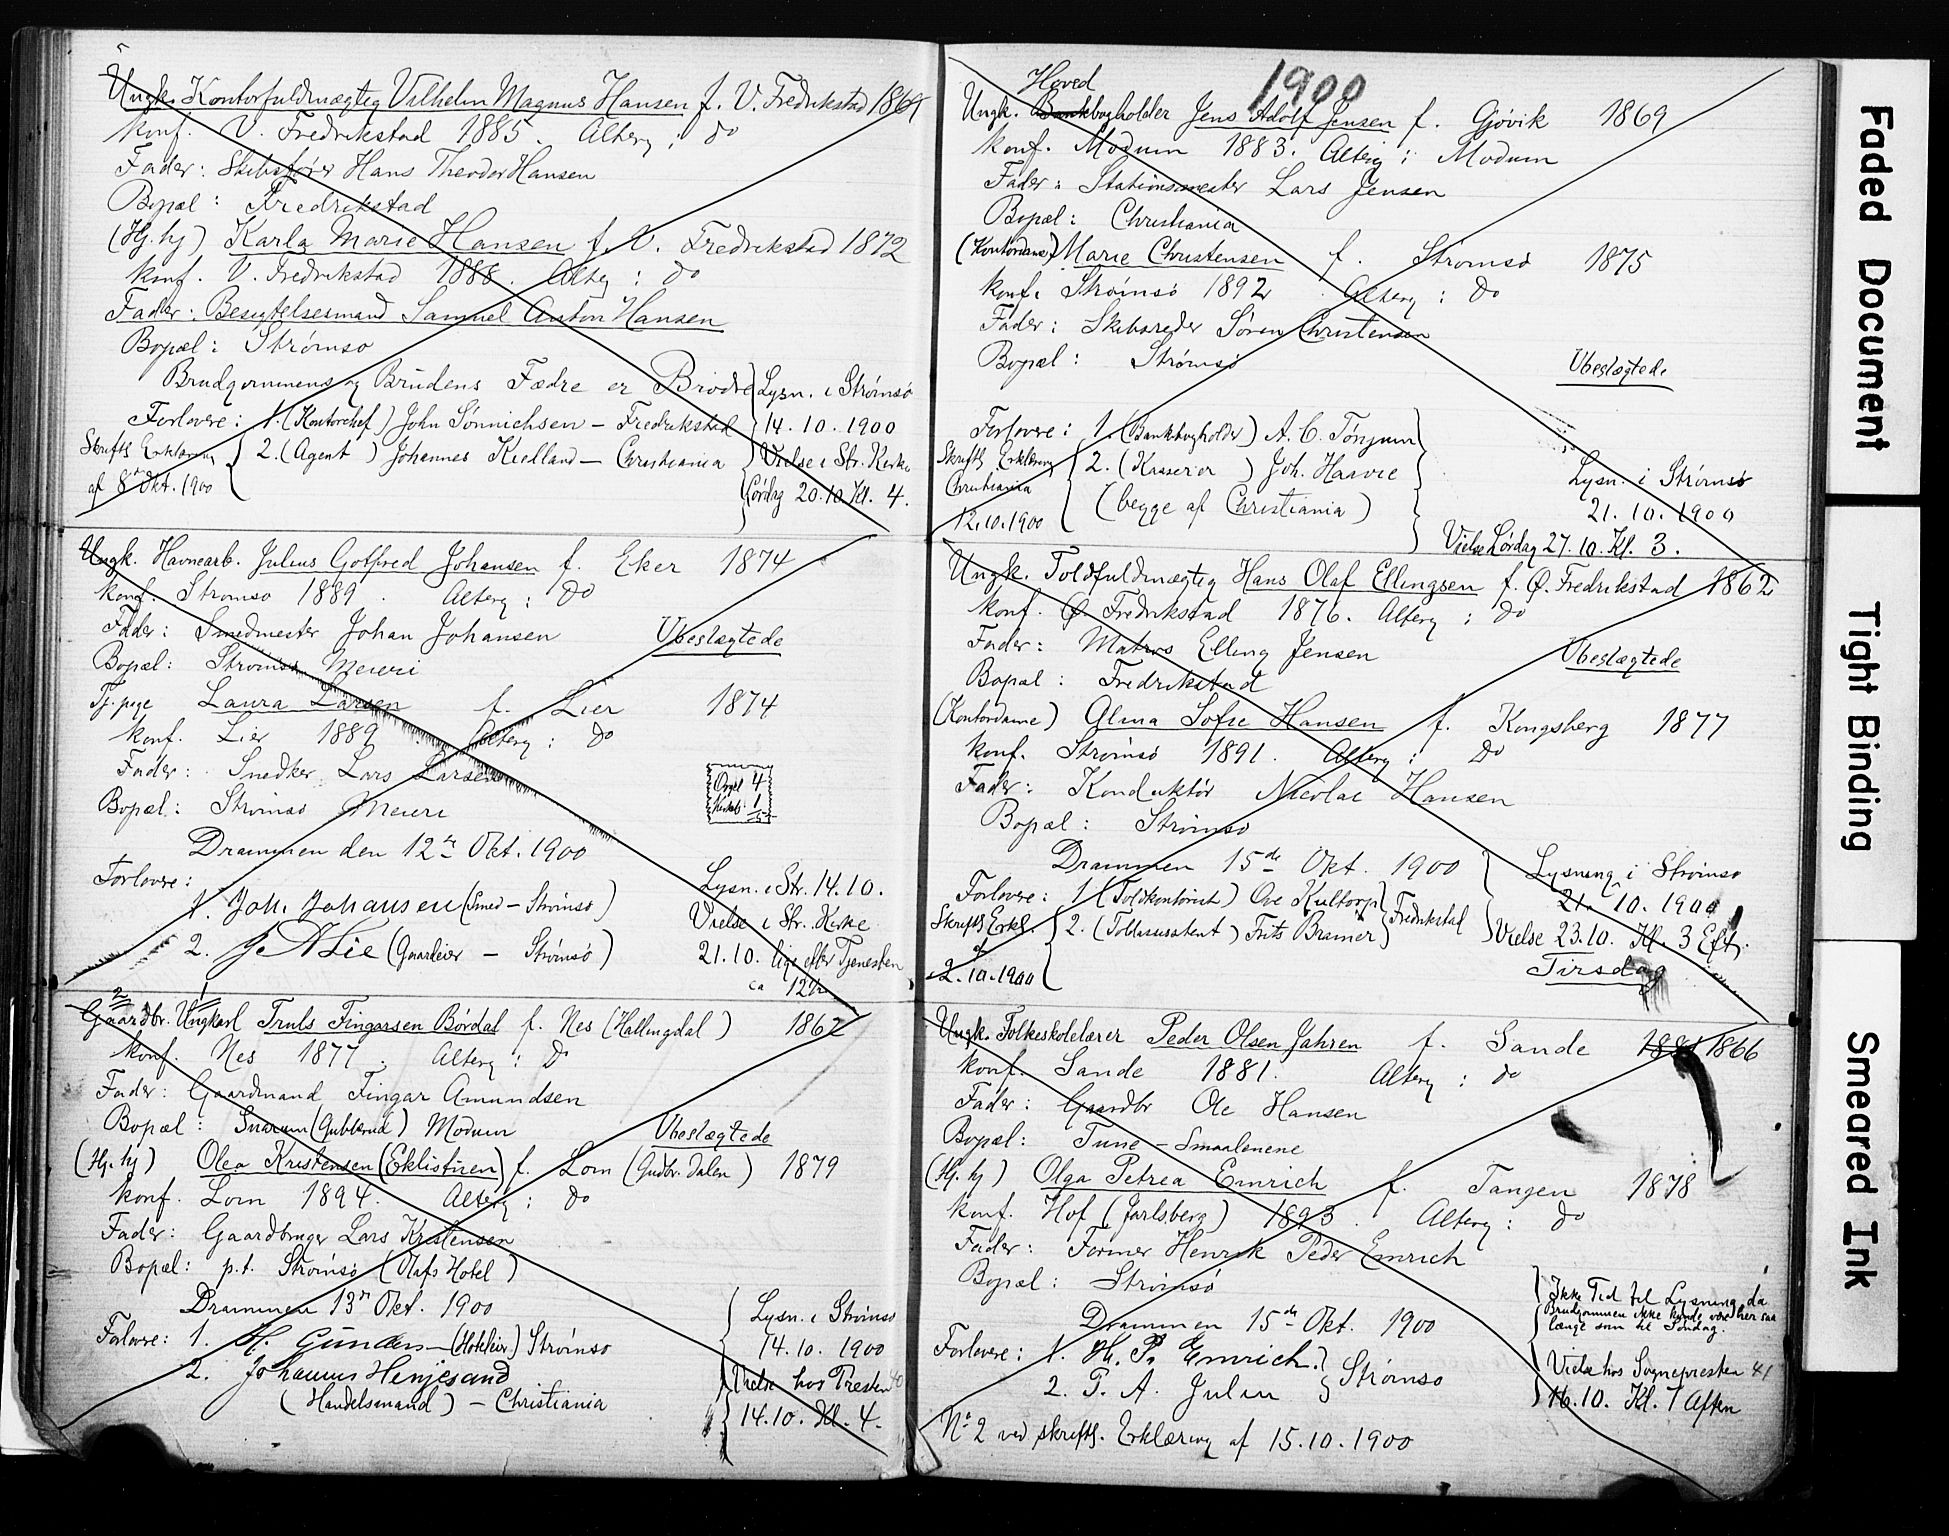 Ungk. Kontorfuldmægtig Vilhelm Magnus Hansen f. V. Fredrikstad 1869
konf. V. Fredrikstad 1885. Alterg: do
Fader: Skibsfører Hans Theodor Hansen
Bopæl: Fredrikstad
(Hj. hj) Karla Marie Hansen f. V. Fredrikstad 1872
konf. V. Fredrikstad 1888. Alterg: do
Fader: Besigtelsesmand Samuel Anton Hansen
Bopæl: Strømsø
Brudgommens og Brudens Fædre er Brødre
Lysn. i Strømsø
Forlovere: 1. (Kontorchef) John Sønnichsen – Fredrikstad
14.10.1900
Skriftl. Erklæring
2. (Agent) Johannes Kielland – Christiania
Vielse i Str. Kirke
af 8de Okt. 1900
Lørdag 20.10. Kl. 4.
Ungk. Havnearb. Julius Gotfred Johansen f. Eker 1874
konf. Strømsø 1889. Alterg: do
Fader: Smedmester Johan Johansen
Ubeslægtede
Bopæl: Strømsø Meieri
Tj. pige Laura Larsen f. Lier 1874
konf. Lier 1889 Alterg: do
Fader: Snedker Lars Larsen
Orgel 4
1
5
Bopæl: Strømsø Meieri
Drammen den 12te Okt. 1900
Forlovere:
Lysn. i Str. 14.10.
1. Joh. Johansen (Smed – Strømsø)
Vielse i Str. Kirke
2. J. N. Lie (Gaardeier – Strømsø)
21.10. lige efter Tjenesten
ca 12½
2 1
Gaardbr. Ungkarl Truls Fingarsen Børdal f. Nes (Hallingdal) 1862
konf. Nes 1877. Alterg: Do
Fader: Gaardmand Fingar Amundsen
Bopæl: Snarum (Gubberud) Modum
Ubeslægtede
(Hj. hj) Olea Kristensen (Eklistuen) f. Lom (Gudbr. dalen) 1879
konf. Lom 1894. Alterg: do
Fader: Gaardbruger Lars Kristensen
Bopæl: p.t. Strømsø (Olafs Hotel)
Drammen 13de Okt. 1900
Lysn. i Strømsø
Forlovere: 1. H. Gundersen (Hoteleier) Strømsø
14.10.1900
2. Johannes Henjesand
Vielse hos Presten
(Handelsmand) – Christiania
14.10. Kl. 4.
1900
Hoved
Ungk. Bankbogholder Jens Adolf Jensen f. Gjøvik 1869
konf. Modum 1883. Alterg: Modum
Fader: Stationsmester Lars Jensen
Bopæl: Christiania
(Kontordame) Marie Christensen f. Strømsø 1875
konf. Strømsø 1892. Alterg: do
Fader: Skibsreder Søren Christensen
Bopæl: Strømsø
Ubeslægtede
Forlovere: 1. (Bankbogholder) A. C. Tønjum
Skriftl. Erklæring
2. (Kasserer) Joh. Haavie
Lysn. i Strømsø
Christiania
(begge af Christiania)
21.10.1900
12.10.1900
Vielse Lørdag 27.10. Kl. 3.
Ungk. Toldfuldmægtig Hans Olaf Ellingsen f. Ø. Fredrikstad 1862
konf. Ø. Fredrikstad 1876. Alterg: do
Fader: Matros Elling Jensen
Ubeslægtede
Bopæl: Fredrikstad
(Kontordame) Alma Sofie Hansen f. Kongsberg 1877
konf. Strømsø 1891. Alterg: Do
Fader: Konduktør Nicolai Hansen
Bopæl: Strømsø
Drammen 15de Okt. 1900
Lysning i Strømsø
Forlovere: 1. (Toldkontorist) Ove Kultorp
Fredrikstad
21. 10. 1900
Skriftl. Erkl.
2. (Toldassistent) Frits Bramer
Vielse 23.10. Kl. 3 Eft.
af
2.10.1900
Tirsdag
Ungk. Folkeskolelærer Peder Olsen Jahren f. Sande 1881 1866
konf. Sande 1881. Alterg: do
Fader: Gaardbr Ole Hansen
Bopæl: Tune – Smaalenene
(Hj. hj) Olga Petrea Emrich f. Tangen 1878
konf. Hof (Jarlsberg) 1893. Alterg: do
Fader: Former Henrik Peder Emrich
Bopæl: Strømsø
Ikke Tid til Lysning, da
Brudgommen ikke kunde være her saa
længe som til Søndag.
Drammen 15de Okt. 1900
Forlovere: 1. H. P. Emrich
Strømsø
Vielse hos Sognepresten
2. P. A. Julin
16.10. Kl. 7 Aften
No 2 ved skriftl. Erklæring af 15.10.1900
Faded Document
Tight Binding
Smeared Ink